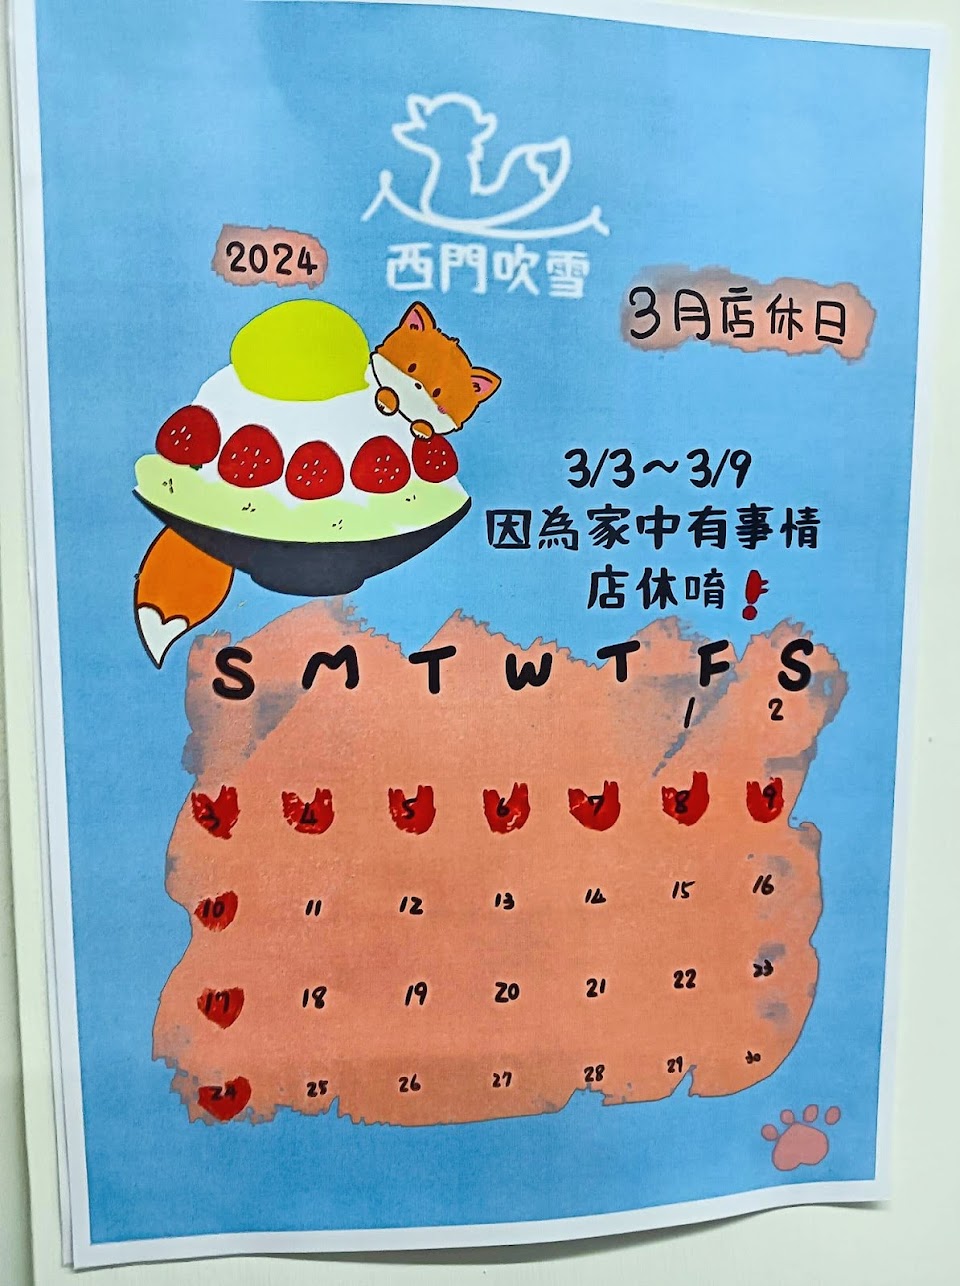 西門吹雪
2024
3月店休日
3/3～3/9
因為家中有事情
店休唷!
S M T W T F S
1 2
3 4 5 6 7 8 9
10 11 12 13 14 15 16
17 18 19 20 21 22 23
24 25 26 27 28 29 30